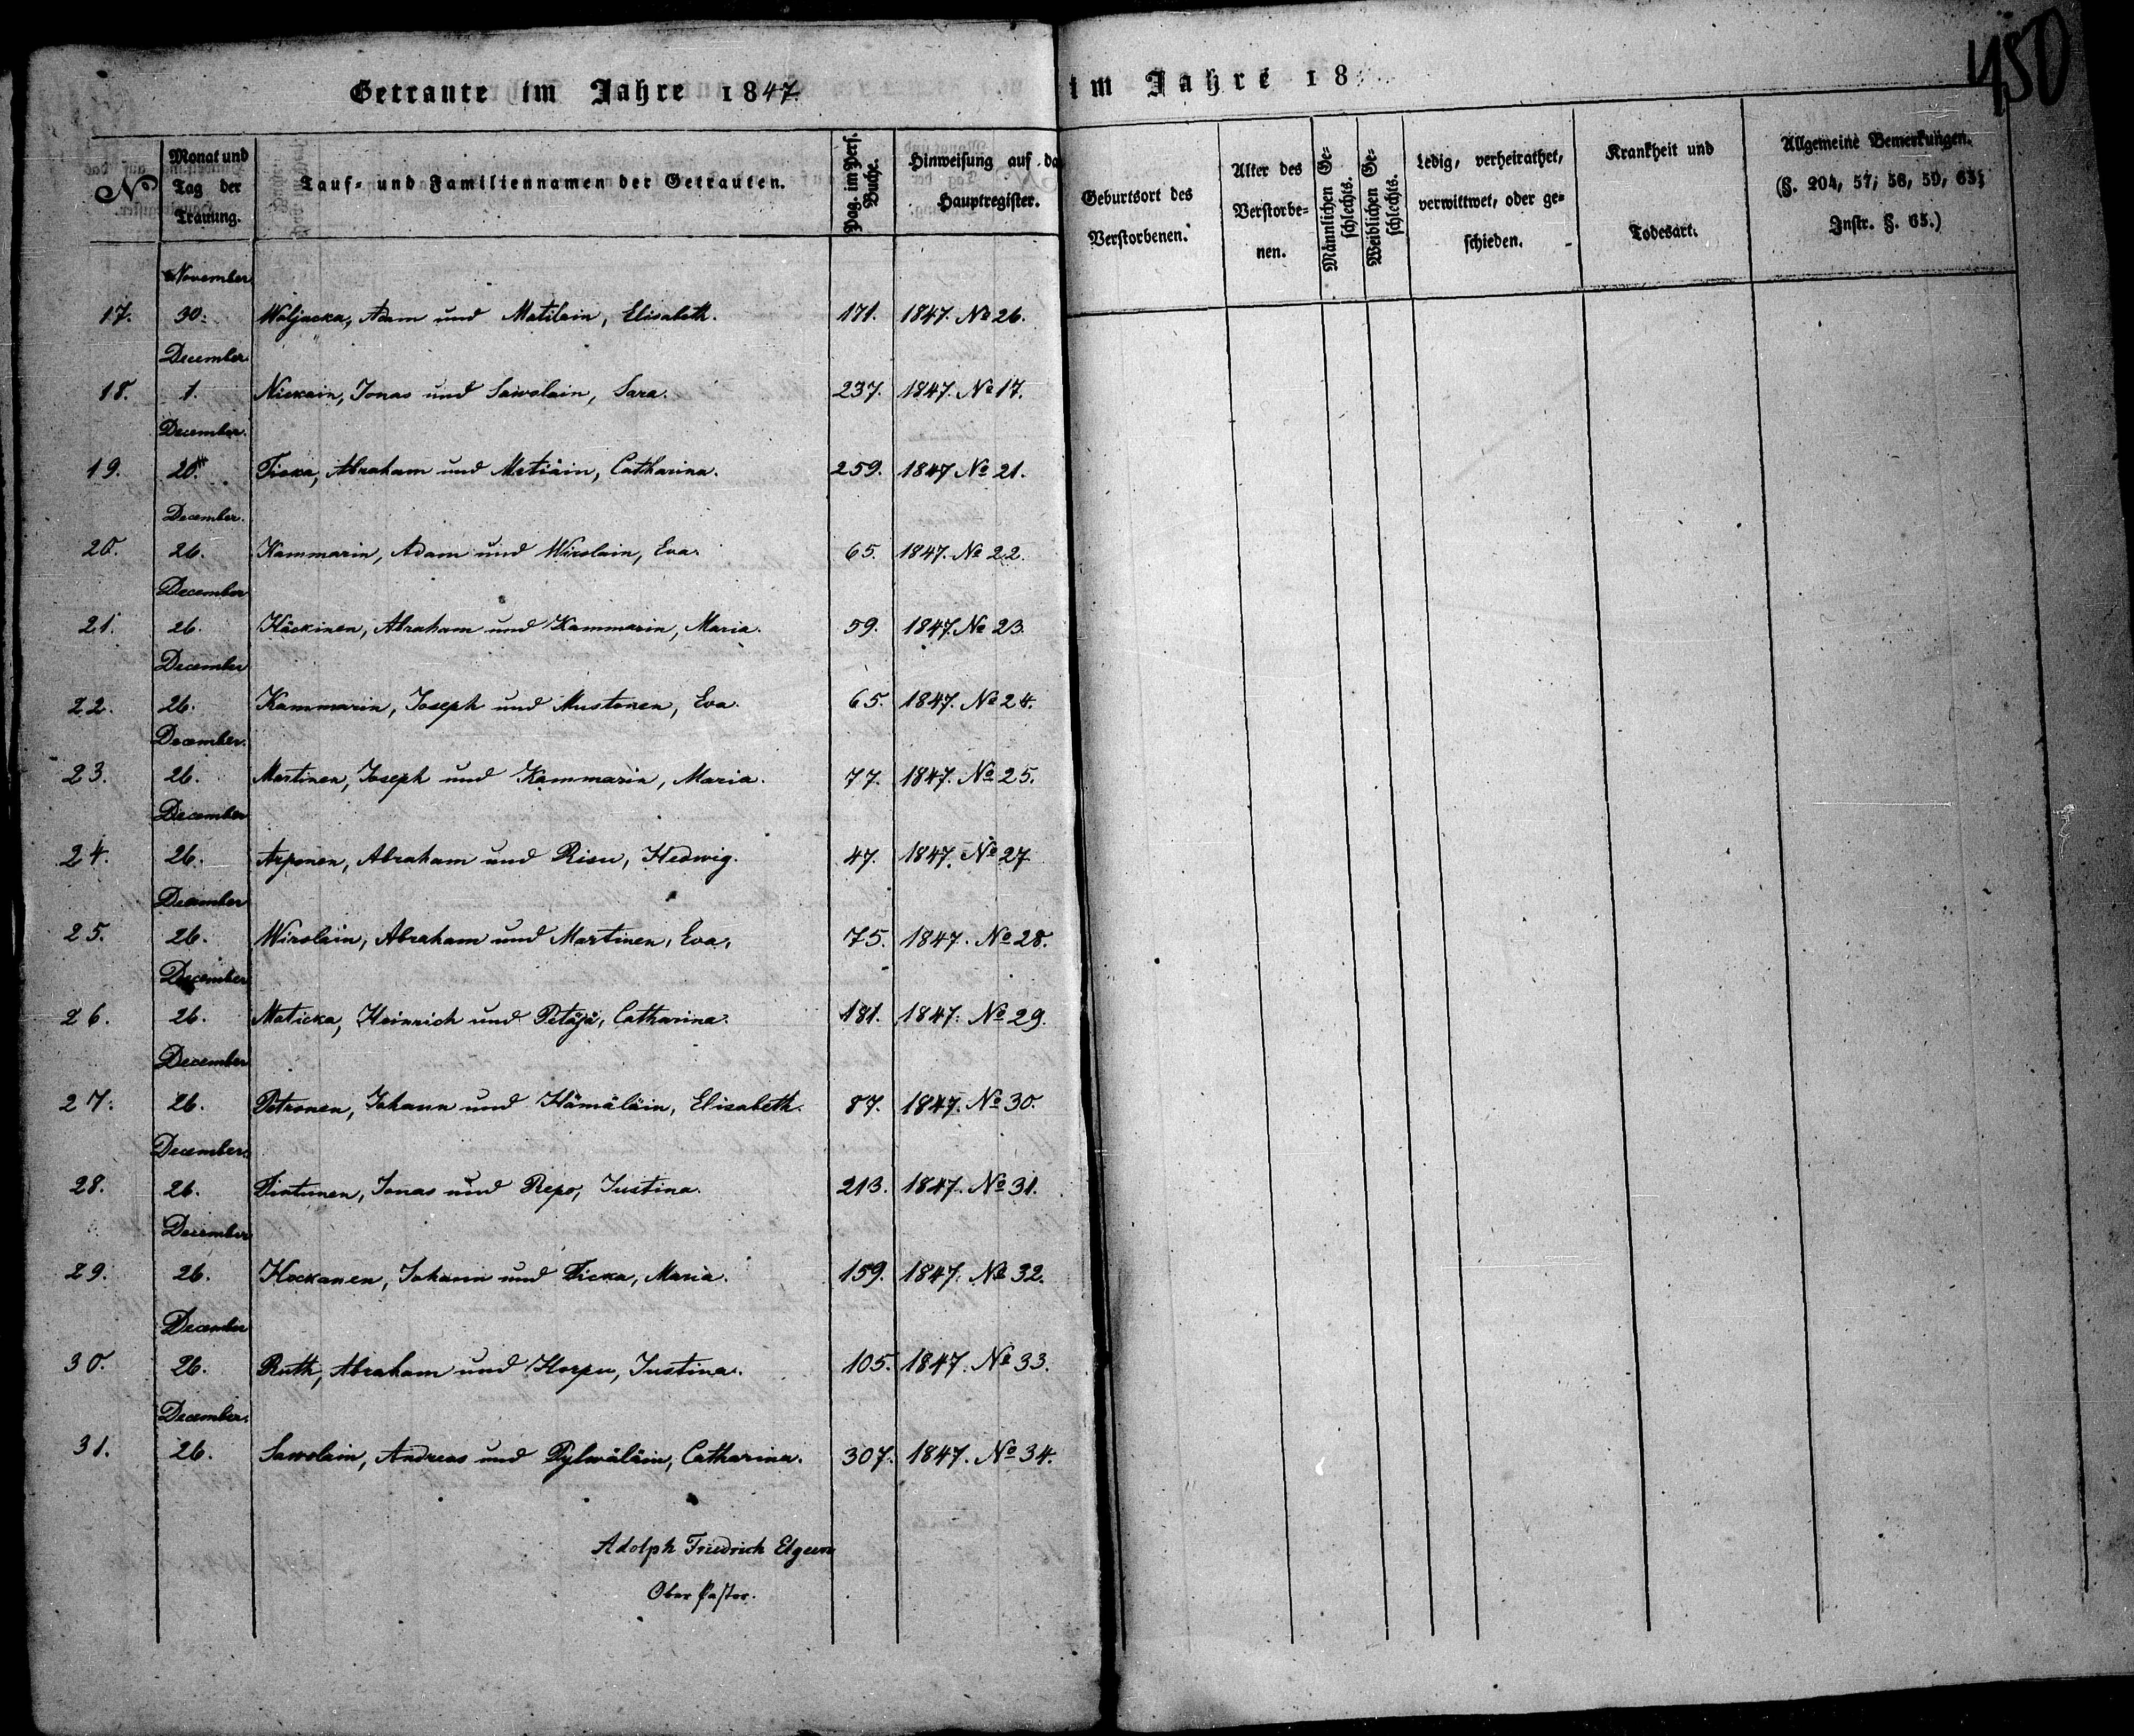 Getraute im Jahre 1847.
No
Monat und Tag der Trauung.
Tauf- und Familiennamen der Getrauten.
Pag. im Pers. Buche.
Hinweisung auf da
Hauptregister.
November
17. 30. Woljacka, Adam und Matilain, Elisabeth. 171. 1847. No 26.
December
18. 1. Nickain, Jonas und Sawolain, Sara. 237. 1847. No 17.
December.
19. 20. Ticka, Abraham und Matiäin, Catharina. 259. 1847 No 21.
December.
20. 26. Kammarin, Adam und Wirolain, Eva. 65. 1847. No 22.
December
21. 26. Häckinen, Abraham und Kammarin, Maria. 59. 1847. No 23.
December
22. 26. Kammarin, Joseph und Mustonen, Eva. 65. 1847. No 24.
December.
23. 26. Martinen, Joseph und Kammarin, Maria. 77. 1847. No 25.
December
24. 26. Arponen, Abraham und Risu, Hedwig. 47. 1847. No 27
December
25. 26. Wirolain, Abraham und Martinen, Eva. 75. 1847. No 28.
December
26. 26. Maticka, Heinrich und Petäjä, Catharina. 181. 1847. No 29.
December
27. 26. Petronen, Johann und Hämäläin, Elisabeth. 87. 1847. No 30.
December.
28. 26. Jonas und Repo, Justina. 213. 1847. No 31.
December
29. 26. Hockanen, Johann und Ticka, Maria. 159. 1847. No 32.
December
30. 26. Ruth, Abraham und Horpu, Justina. 105. 1847. No 33.
December.
31. 26. Sawolain, Andreas und Pylwäläin, Catharina. 307. 1847. No 34.
Adolph Friedrich
Ober Pastor.
im Jahre 18
450
Geburtsort des Verstorbenen.
Alter des Verstorbe-
nen.
Männlichen Ge-
schlechts.
Weiblichen Ge-
schlechts.
Ledig, verheirathet,
verwittwet, oder ge-
schieden.
Krankheit und
Todesart.
Allgemeine Bemerkungen.
(§. 204, 57, 58, 59, 63;
Instr. §. 65.)